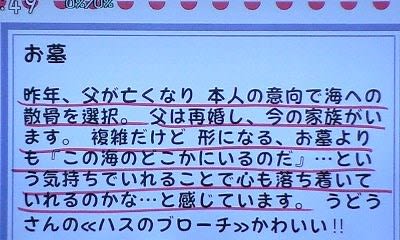 :49 0%/20%
お墓
昨年、父が亡くなり 本人の意向で海への
散骨を選択。 父は再婚し、今の家族がい
ます。 複雑だけど 形になる、お墓より
も『この海のどこかにいるのだ』…とい
う気持ちでいれることで心も落ち着いて
いれるのかな…と感じています。 うどう
さんの≪ハスのブローチ≫かわいい!!